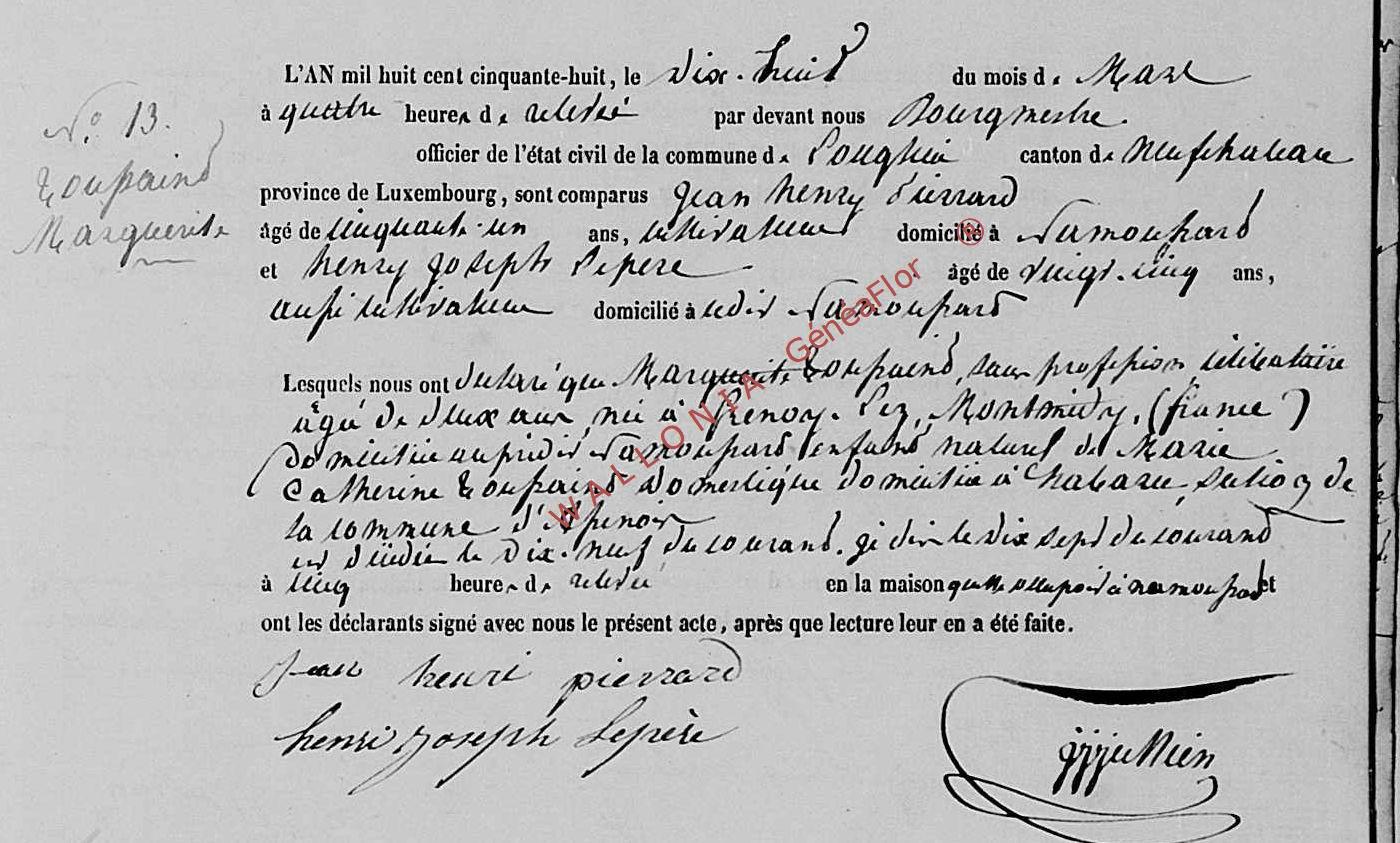 N.° 13.
Toupaint
Marguerite
L'AN mil huit cent cinquante-huit, le dix-huit du mois de Mars
à quatre heures de relevée par devant nous Bourgmestre
officier de l'état civil de la commune de Longlier canton de Neufchateau
province de Luxembourg, sont comparus Jean henry Pierrard
âgé de cinquante-un ans, cultivateur domicilié à Namoussard
et henry Joseph Lepere âgé de vingt-cinq ans,
aussi cultivateur domicilié à udit Namoussard
Lesquels nous ont declaré que Marguerite Toupaint, sans profession célibataire
agée de deux ans, née à Lez, Montmidy, (france)
domiciliée audit Namoussard enfant naturel de Marie
Catherine Toupaint domestique domiciliée à section de
la commune d'
est le dix-neuf du courant. dit le dix sept du courant
à cinq heures de relevée en la maison quelle occupoit à namoussard et
ont les déclarants signé avec nous le présent acte, après que lecture leur en a été faite.
Jean henri pierrard
henri joseph Lepère
WALLONIA GénéaFlor ®